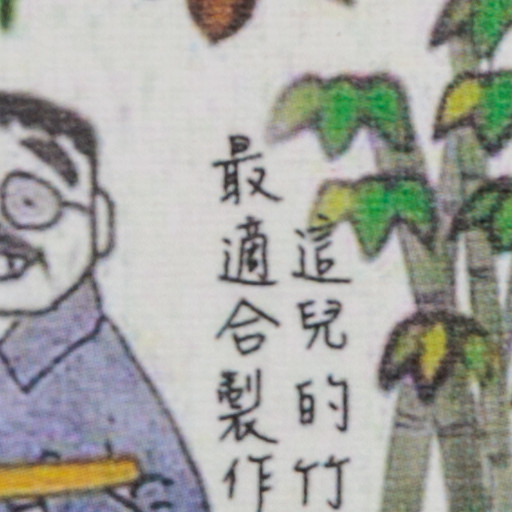 這兒的竹
最適合製作